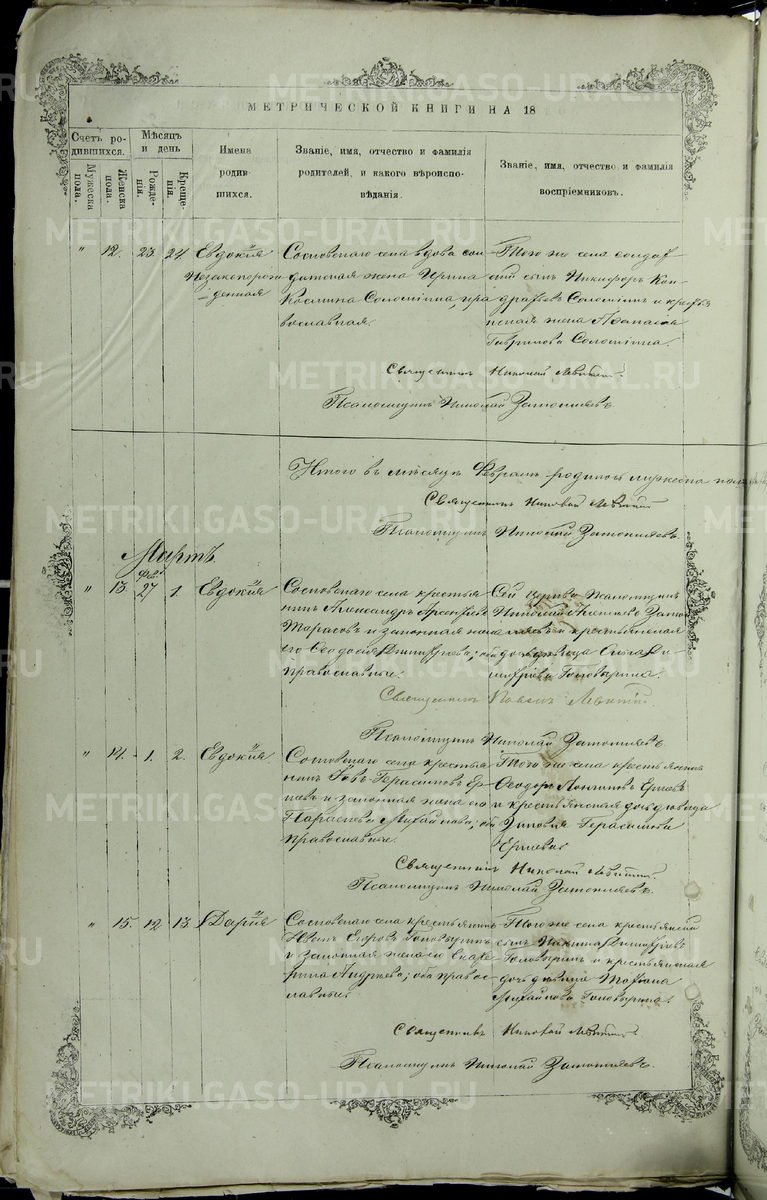 МЕТРИЧЕСКОЙ КНИГИ НА 18
Счетъ ро-
дившихся.
Мужеска
пола.
Женска
пола.
Мѣсяцъ
и день
Рожде-
нія.
Креще-
нія.
Имена
родив-
шихся.
Званіе, имя, отчество и фамилія
родителей, и какого вѣроиспо-
вѣданія.
Званіе, имя, отчество и фамилія
воспріемниковъ.
" 12. 23. 24 Евдокія
Незаконорож-
денная
Сосновскаго села вдова сол-
датская жена Ирина
Космина Соломіина, пра
вославная.
Того же села солдат-
скій сынъ Никифоръ Кон-
дратьевъ Соломіинъ и крестья
нская жена Афанасія
Гаврилова Соломіина.
Священникъ Николай Левитскій
Псаломщикъ Николай
Итого въ мѣсяцѣ Февралѣ родилось мужеска пола
Священникъ Николай Левитскій
Псаломщикъ Николай
Мартъ.
Фев.
" 13. 27 1. Евдокія
Сосновскаго села крестья
нинъ Александръ
Тарасовъ и законная жена
его Ѳеодосія Димитріева; оба
православные.
Сей церкви Псаломщикъ
Николай
и крестьянская
дочь дѣвица Ольга Ди-
митріева Головырина.
Священникъ Павелъ Левитскій
Псаломщикъ Николай
" 14. 1. 2. Евдокія
Сосновскаго села крестья
нинъ Іовъ Герасимовъ Ер-
шевъ и законная жена его
Параскева Михайлова; оба
православные.
Того же села крестьянинъ
Ѳеодоръ Логиновъ Ершевъ
и крестьянская дочь дѣвица
Зиновія Герасимова
Ершева
Священникъ Николай Левитскій.
Псаломщикъ Николай
" 15. 12 13. Дарія
Сосновскаго села крестьянинъ
Головыринъ
и законная жена его Екате-
рина Андреева; оба правос-
лавные.
Того же села крестьянскій
сынъ Никита Димитріевъ
Головыринъ и крестьянская
дочь дѣвица Татіана
Михайлова Головырина.
Священникъ Николай Левитскій
Псаломщикъ Николай
METRIKI.GASO-URAL.RU